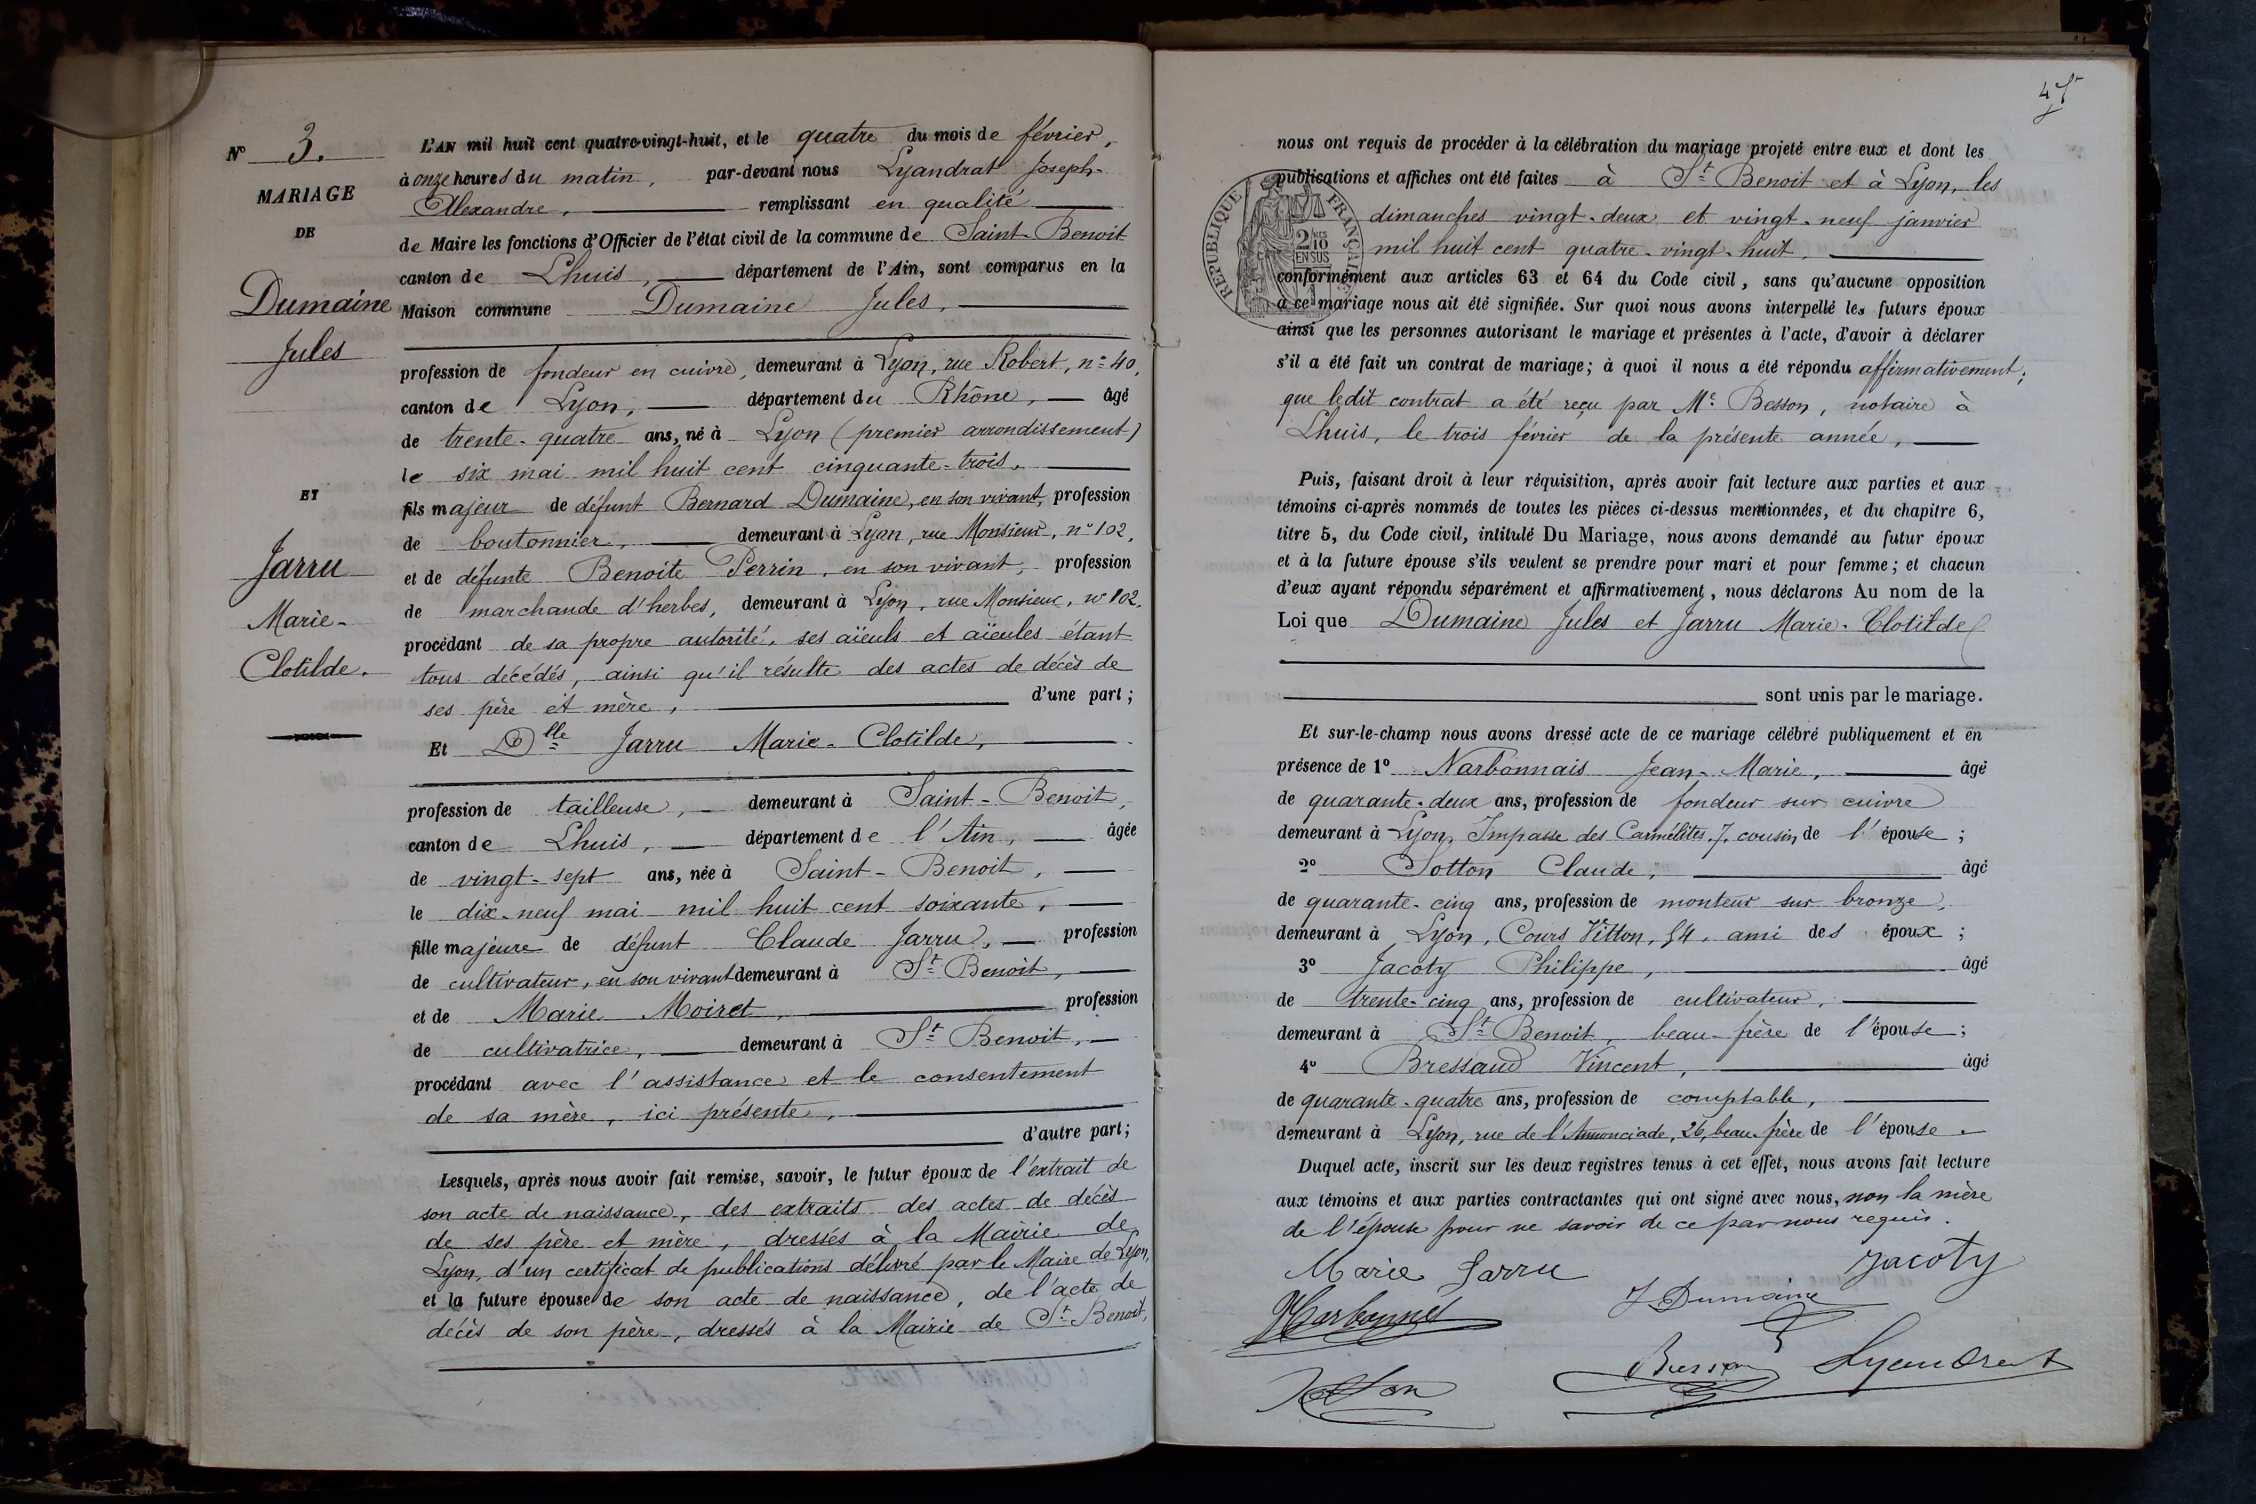 N° 3.
MARIAGE
DE
Dumaine
Jules
ET
Jarru
Marie-
Clotilde.
L'AN mil huit cent quatre-vingt-huit, et le quatre du mois de février,
à onze heures du matin, par-devant nous Lyandrat Joseph-
Alexandre, remplissant en qualité
de Maire les fonctions d'Officier de l'état civil de la commune de Saint-Benoit
canton de Lhuis, département de l'Ain, sont comparus en la
Maison commune Dumaine Jules,
profession de fondeur en cuivre, demeurant à Lyon, rue Robert, n° 40,
canton de Lyon, département du Rhône, âgé
de trente-quatre ans, né à Lyon (premier arrondissement)
le six mai mil huit cent cinquante-trois,
fils majeur de défunt Bernard Dumaine, en son vivant, profession
de boutonnier, demeurant à Lyon, rue Monsieur, n° 102,
et de défunte Benoite Perrin, en son vivant, profession
de marchande d'herbes, demeurant à Lyon, rue Monsieur, n° 102,
procédant de sa propre autorité, ses aïeuls et aïeules étant
tous décédés, ainsi qu'il résulte des actes de décès de
ses père et mère, d'une part;
Et Dlle Jarru Marie-Clotilde,
profession de tailleuse, demeurant à Saint-Benoit,
canton de Lhuis, département de l'Ain, âgée
de vingt-sept ans, née à Saint-Benoit,
le dix-neuf mai mil huit cent soixante,
fille majeure de défunt Claude Jarru, profession
de cultivateur, en son vivant demeurant à St Benoit,
et de Marie Moiret, profession
de cultivatrice, demeurant à St Benoit,
procédant avec l'assistance et le consentement
de sa mère, ici présente,
d'autre part;
Lesquels, après nous avoir fait remise, savoir, le futur époux de l'extrait de
son acte de naissance, des extraits des actes de décès
de ses père et mère, dressés à la Mairie de
Lyon, d'un certificat de publications délivré par le Maire de Lyon,
et la future épouse de son acte de naissance, de l'acte de
décès de son père, dressés à la Mairie de St Benoit,
nous ont requis de procéder à la célébration du mariage projeté entre eux et dont les
publications et affiches ont été faites à St Benoit et à Lyon, les
dimanches vingt-deux et vingt-neuf janvier
mil huit cent quatre-vingt-huit,
RÉPUBLIQUE FRANÇAISE
2/10
EN SUS
conformément aux articles 63 et 64 du Code civil, sans qu'aucune opposition
à ce mariage nous ait été signifiée. Sur quoi nous avons interpellé les futurs époux
ainsi que les personnes autorisant le mariage et présentes à l'acte, d'avoir à déclarer
s'il a été fait un contrat de mariage; à quoi il nous a été répondu affirmativement;
que ledit contrat a été reçu par Me Besson, notaire à
Lhuis, le trois février de la présente année,
Puis, faisant droit à leur réquisition, après avoir fait lecture aux parties et aux
témoins ci-après nommés de toutes les pièces ci-dessus mentionnées, et du chapitre 6,
titre 5, du Code civil, intitulé Du Mariage, nous avons demandé au futur époux
et à la future épouse s'ils veulent se prendre pour mari et pour femme; et chacun
d'eux ayant répondu séparément et affirmativement, nous déclarons Au nom de la
Loi que Dumaine Jules et Jarru Marie-Clotilde
sont unis par le mariage.
Et sur-le-champ nous avons dressé acte de ce mariage célébré publiquement et en
présence de 1° Narbonnais Jean-Marie, âgé
de quarante-deux ans, profession de fondeur sur cuivre
demeurant à Lyon, Impasse des Carmélites, 7, cousin de l'épouse;
2° Sotton Claude, âgé
de quarante-cinq ans, profession de monteur sur bronze,
demeurant à Lyon, Cours Vitton, 54, ami des époux;
3° Jacoty Philippe, âgé
de trente-cinq ans, profession de cultivateur,
demeurant à St Benoit, beau-frère de l'épouse;
4° Bressaud Vincent, âgé
de quarante-quatre ans, profession de comptable,
demeurant à Lyon, rue de l'Annonciade, 26, beau-frère de l'épouse.
Duquel acte, inscrit sur les deux registres tenus à cet effet, nous avons fait lecture
aux témoins et aux parties contractantes qui ont signé avec nous, non la mère
de l'épouse pour ne savoir de ce par nous requis.
Marie Jarru
Jacoty
J Dumaine
Lyandrat